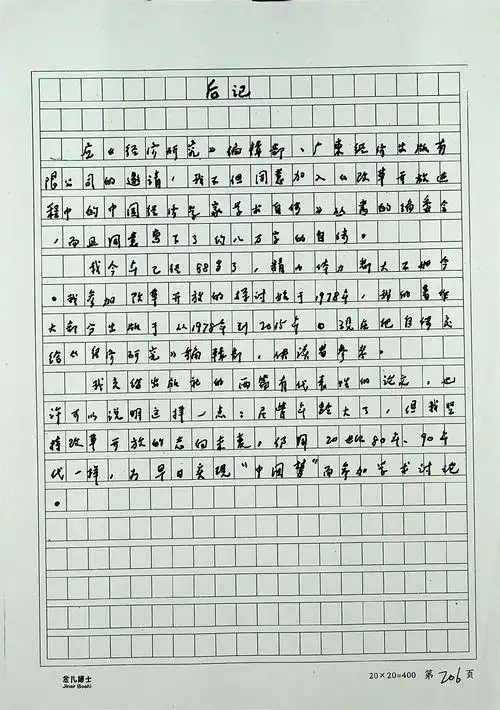 后记
应《经济研究》编辑部、广东经济出版有
限公司的邀请，我不但同意加入《改革开放进
程中的中国经济学家学术自传》丛书的编委会
，而且同意写下了约八万字的自传。
我今年已经88岁了，精力体力都大不如今
。我参加改革开放的探讨始于1978年，我的著作
大部分出版于从1978年到2015年。现在把自传交
给《经济研究》编辑部，供读者参考。
我交给出版社的两篇有代表性的论文，也
许可以说明这样一点：尽管年龄大了，但我坚
持改革开放的志向未变，仍同20世纪80年、90年
代一样，为早日实现“中国梦”而参加学术讨论
。
金儿博士
Jiner Boshi
20×20=400 第206页